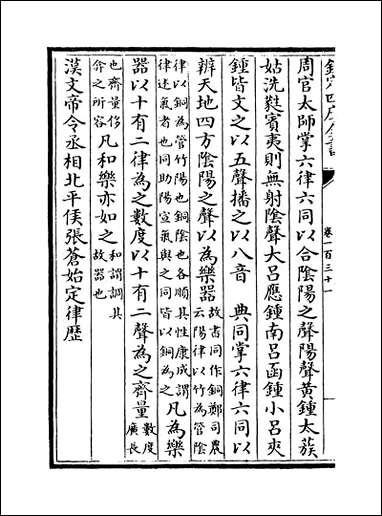 欽定四庫全書
卷一百三十一
周官太師掌六律六同以合陰陽之聲陽聲黄鍾太蔟
姑洗蕤賓夷則無射陰聲大吕應鍾南吕函鍾小吕夾
鍾皆文之以五聲播之以八音　典同掌六律六同以
辨天地四方陰陽之聲以為樂器故書同作銅鄭司農
云陽律以竹為管陰
律以銅為管竹陽也銅陰也各順其性康成謂
律述氣者也同助陽宣氣與之同皆以銅為之凡為樂
器以十有二律為之數度以十有二聲為之齊量數度
廣長
也齊量侈
弇之所容凡和樂亦如之和謂調其
故器也
漢文帝令丞相北平侯張蒼始定律歴